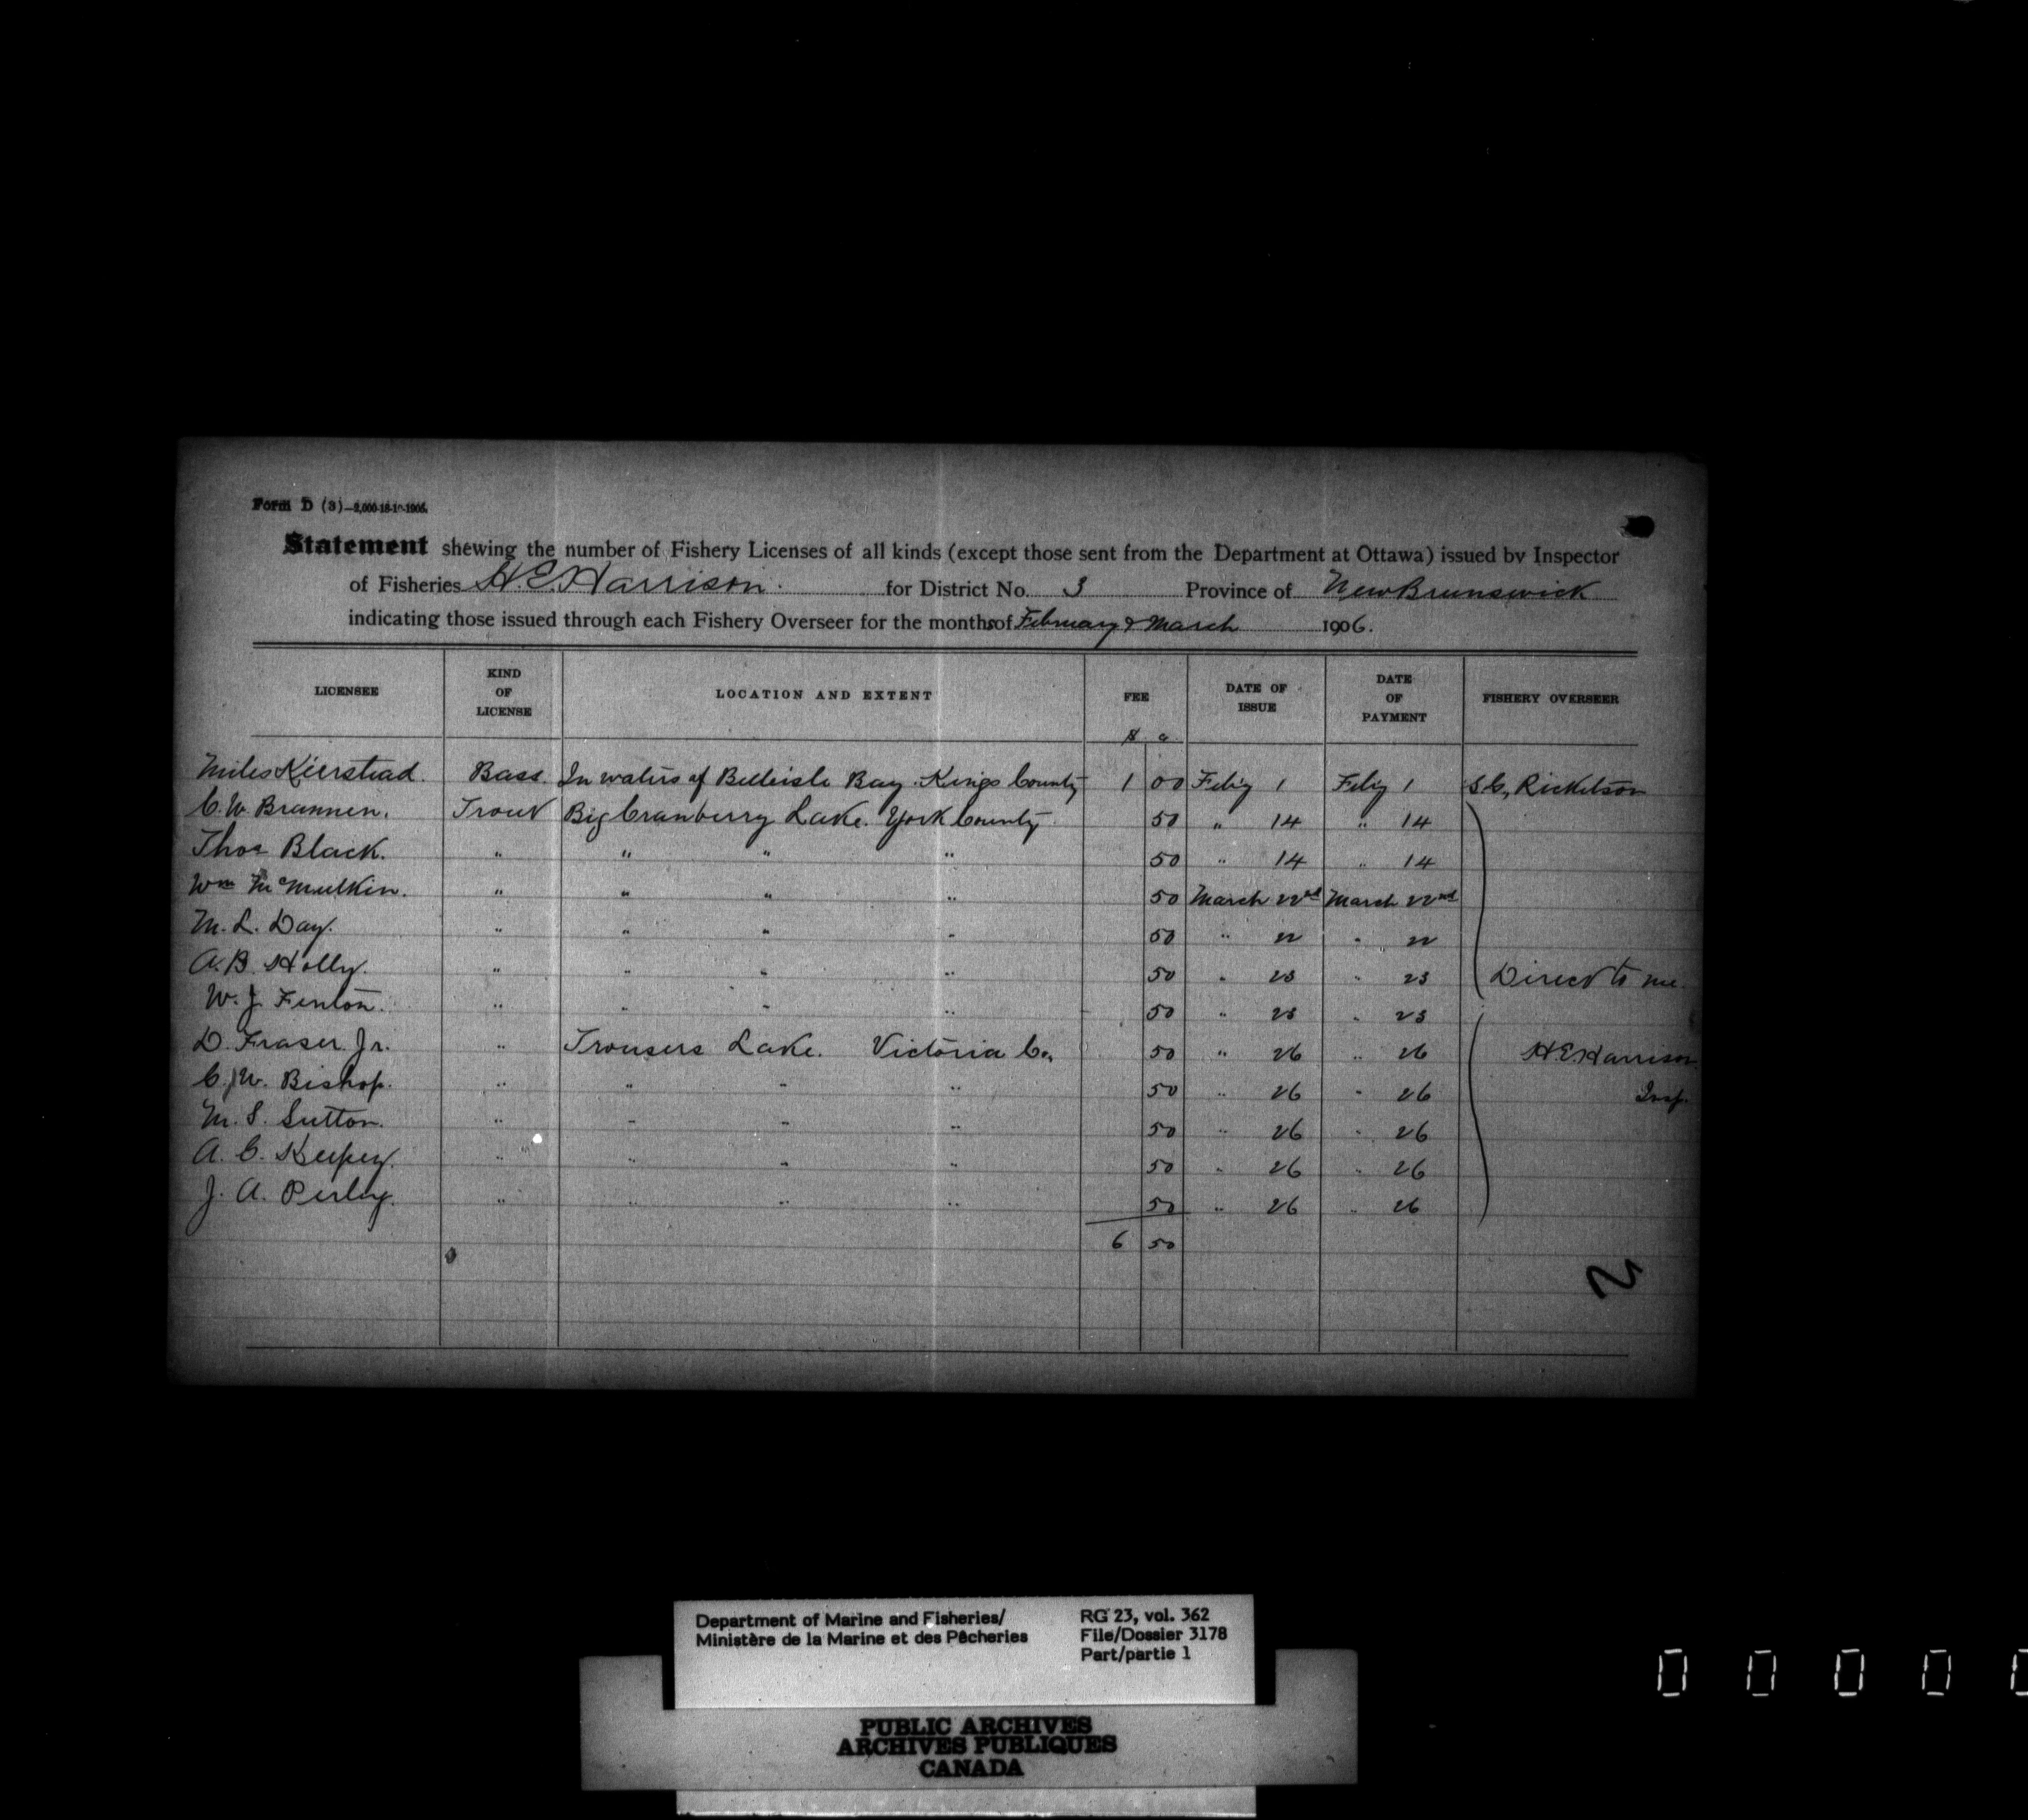 Form D (3)—2,000-18-10-1905.
Statement shewing the number of Fishery Licenses of all kinds (except those sent from the Department at Ottawa) issued by Inspector
of Fisheries H. E. Harrison. for District No. 3 Province of New Brunswick
indicating those issued through each Fishery Overseer for the months of February & March 1906.
LICENSEE KIND OF LICENSE LOCATION AND EXTENT FEE DATE OF ISSUE DATE OF PAYMENT FISHERY OVERSEER
$ c
Miles Kierstead. Bass. In waters of Belleisle Bay. Kings County 1 00 Feby 1 Feby 1 S. C. Ricketson
C. W. Brannen. Trout Big Cranberry Lake. York County 50 " 14 " 14
Thos Black. " " " " 50 " 14 " 14
Wm McMulkin. " " " " 50 March 22nd March 22nd
M. L. Day. " " " " 50 " 22 " 22
A. B. Holly. " " " " 50 " 23 " 23 Direct to me.
W. J. Fenton. " " " " 50 " 23 " 23
D. Fraser. Jr. " Trousers Lake. Victoria Co. 50 " 26 " 26 H. E. Harrison
C. W. Bishop. " " " " 50 " 26 " 26 Insp.
M. S. Sutton. " " " " 50 " 26 " 26
A. C. " " " " 50 " 26 " 26
J. A. Perley. " " " " 50 " 26 " 26
6 50
2
Department of Marine and Fisheries/ RG 23, vol. 362
Ministère de la Marine et des Pêcheries File/Dossier 3178
Part/partie 1
PUBLIC ARCHIVES
ARCHIVES PUBLIQUES
CANADA
0 0 0 0 0